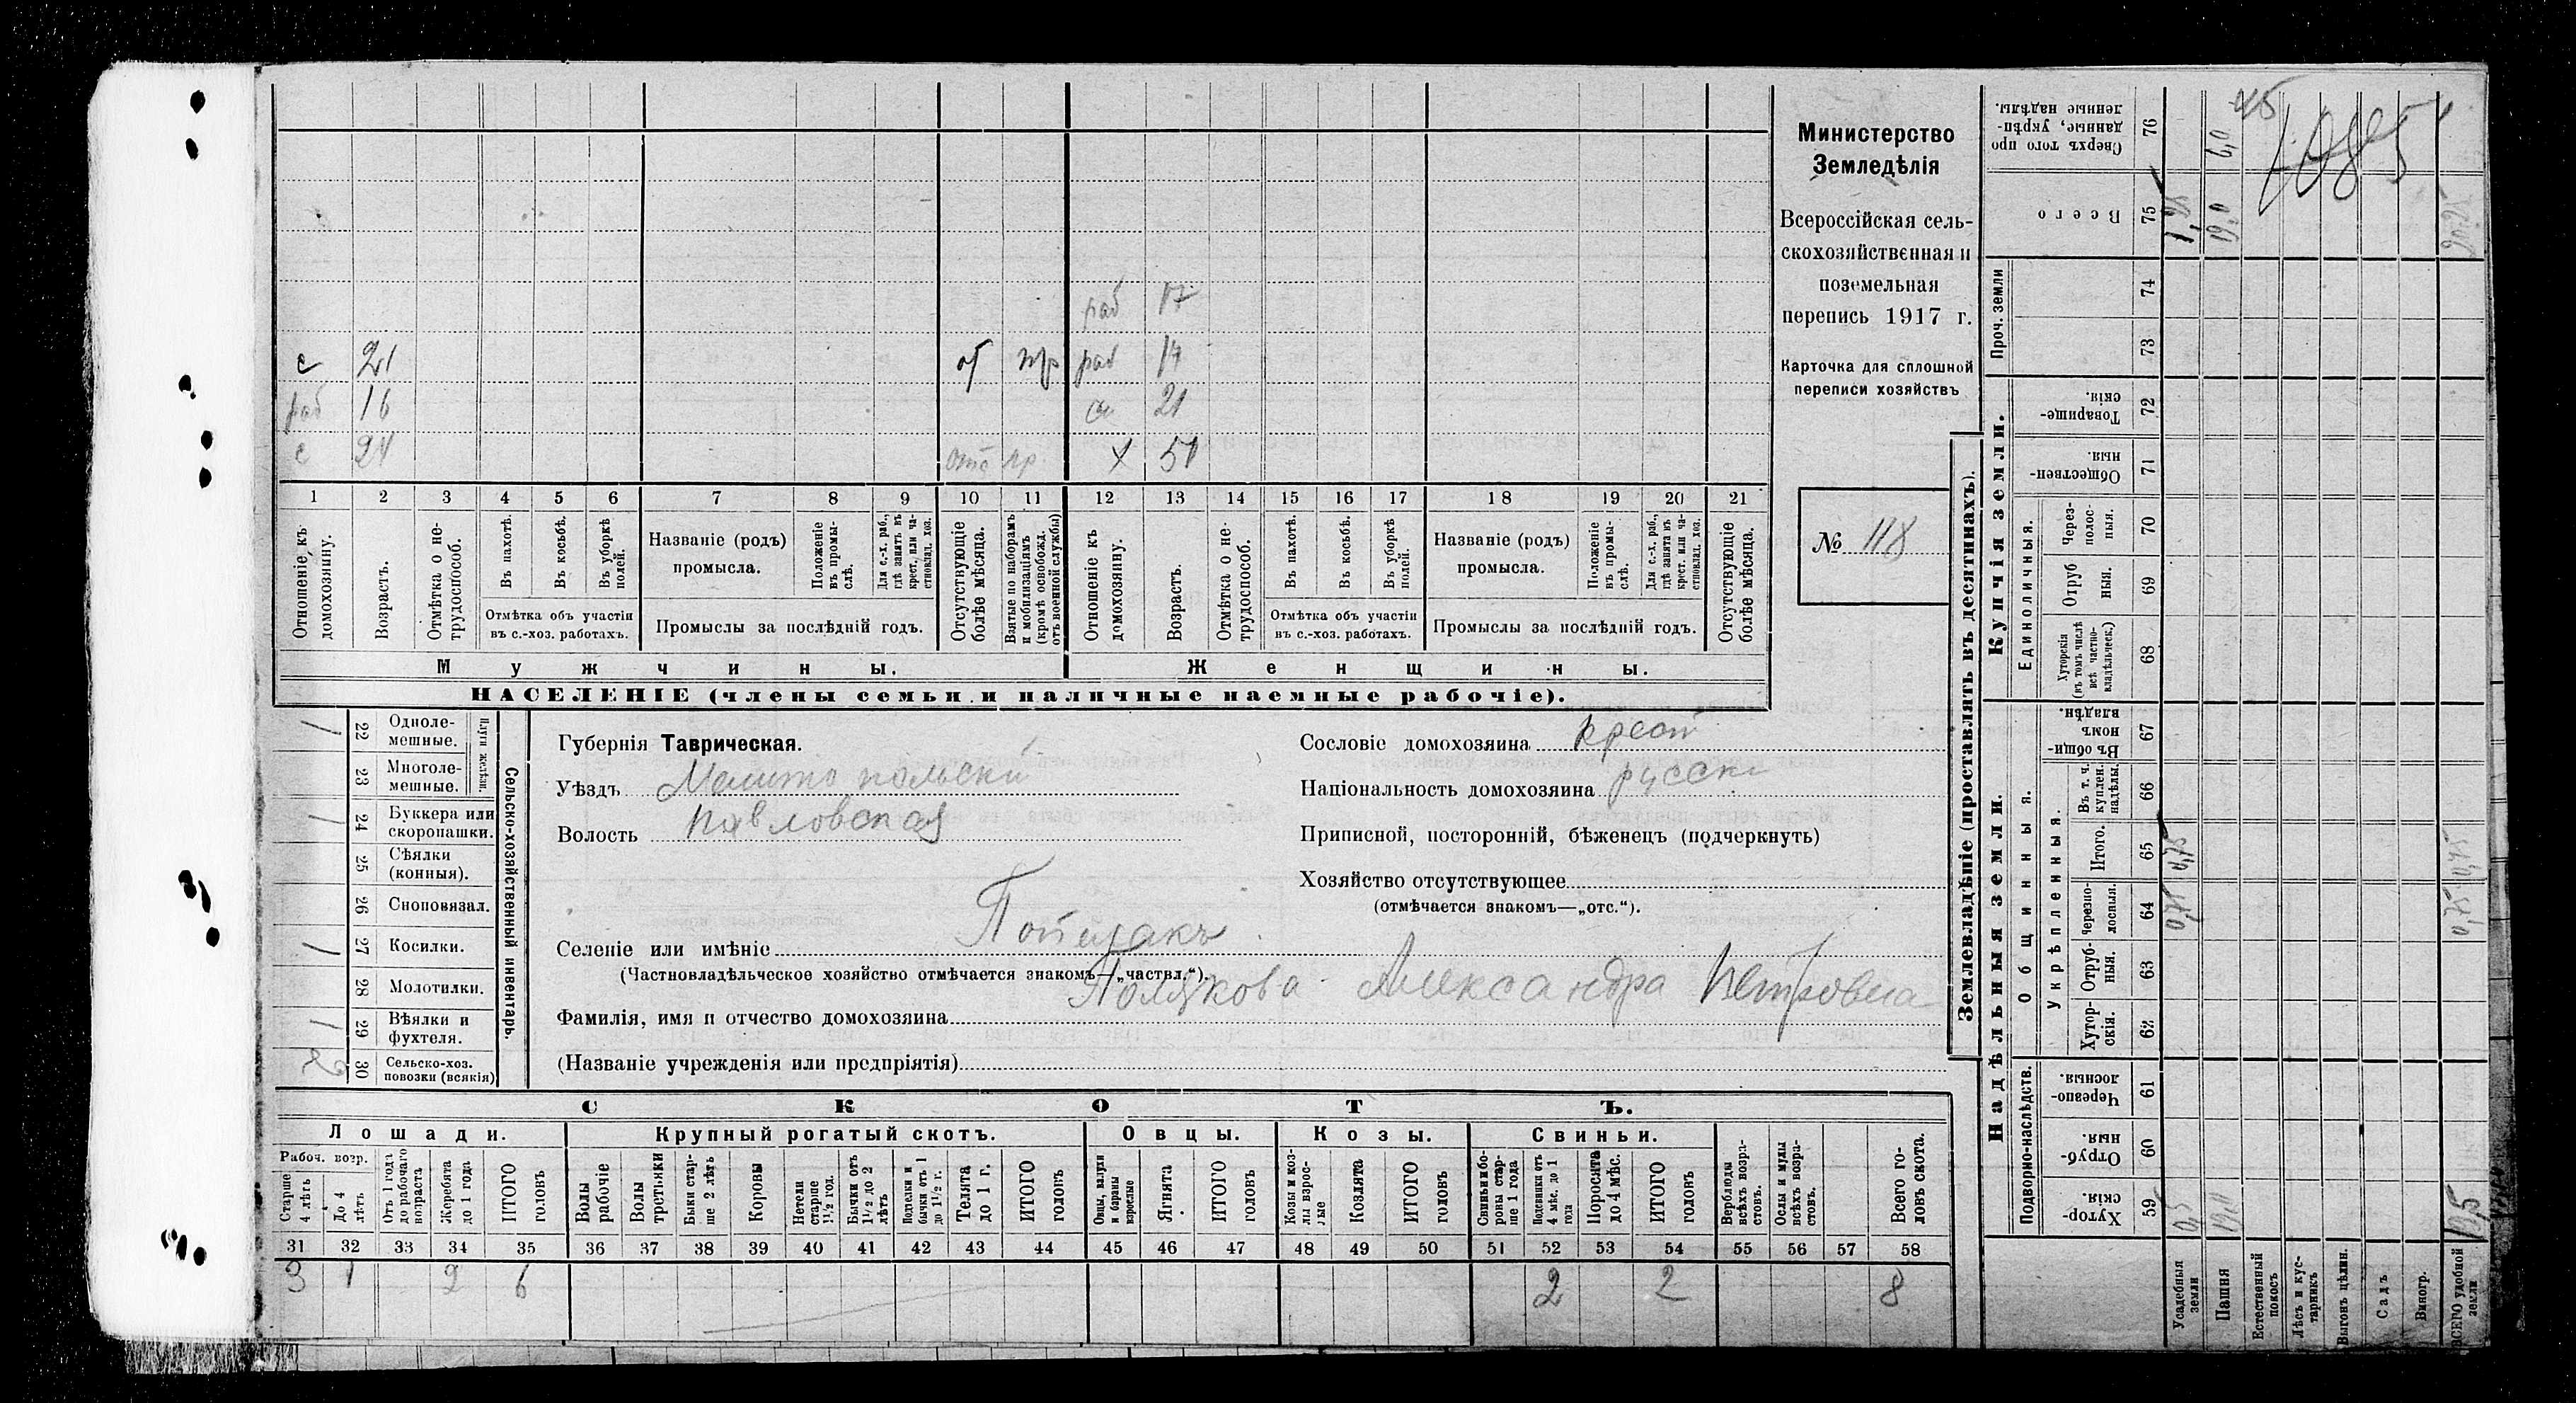 с 21 от мр раб 17
раб 14
раб 16 сн 21
с 24 отс пр х 51
1 2 3 4 5 6 7 8 9 10 11 12 13 14 15 16 17 18 19 20 21
Отношеніе къ домохозяину.
Возрастъ.
Отмѣтка о не-трудоспособ.
Въ пахотѣ.
Въ косьбѣ.
Въ уборкѣ полей.
Отмѣтка объ участіи
въ с.-хоз. работахъ.
Названіе (родъ)
промысла.
Положеніе въ промы-слѣ.
Для с.-х. раб., гдѣ занятъ въ крест. или ча-стновлад. хоз.
Промыслы за послѣдній годъ.
Отсутствующіе болѣе мѣсяца.
Взятые по наборамъ и мобилизаціямъ (кромѣ освобожд. отъ военной службы)
Отношеніе къ домохозяину.
Возрастъ.
Отмѣтка о не-трудоспособ.
Въ пахотѣ.
Въ косьбѣ.
Въ уборкѣ полей.
Отмѣтка объ участіи
въ с.-хоз. работахъ.
Названіе (родъ)
промысла.
Положеніе въ промы-слѣ.
Для с.-х. раб., гдѣ занята въ крест. или ча-стновлад. хоз.
Промыслы за послѣдній годъ.
Отсутствующіе болѣе мѣсяца.
Мужчины. Женщины.
НАСЕЛЕНІЕ (члены семьи и наличные наемные рабочіе).
Министерство
Земледѣлія
Всероссійская сель-
скохозяйственная и
поземельная
перепись 1917 г.
Карточка для сплошной
переписи хозяйствъ
№ 118
Сельско-хозяйственный инвентарь.
Плуги желѣзн.
1 22 Одноле-
мешные.
23 Многоле-
мешные.
1 24 Буккера или
скоропашки.
25 Сѣялки
(конныя).
26 Сноповязал.
1 27 Косилки.
28 Молотилки.
1 29 Вѣялки и
фухтеля.
2 30 Сельско-хоз.
повозки (всякія)
Губернія Таврическая.
Уѣздъ Мелитопольскій
Волость Павловская
Сословіе домохозяина крест
Національность домохозяина русск
Приписной, посторонній, бѣженецъ (подчеркнуть)
Хозяйство отсутствующее
(отмѣчается знакомъ—„отс.“).
Селеніе или имѣніе
(Частновладѣльческое хозяйство отмѣчается знакомъ—„частвл.“).
Фамилія, имя и отчество домохозяина Полякова Александра Петровна
(Названіе учрежденія или предпріятія)
СКОТЪ.
Лошади. Крупный рогатый скотъ. Овцы. Козы. Свиньи.
Рабоч. возр.
Старше 4 лѣтъ
До 4 лѣтъ
Отъ 1 года до рабочаго возраста
Жеребята до 1 года
ИТОГО головъ
Волы рабочіе
Волы третьяки
Быки стар-ше 2 лѣтъ
Коровы
Нетели старше 1½ год.
Бычки отъ 1½ до 2 лѣтъ
Подтелки и бычки отъ 1 до 1½ г.
Телята до 1 г.
ИТОГО головъ
Овцы, валухи и бараны взрослые
Ягнята
ИТОГО головъ
Козы и коз-лы взрос-лые
Козлята
ИТОГО головъ
Свиньи и бо-ровы стар-ше 1 года
Подсвинки отъ 4 мѣс. до 1 года
Поросята до 4 мѣс.
ИТОГО головъ
Верблюды всѣхъ возра-стовъ.
Ослы и мулы всѣхъ возра-стовъ.
Всего го-ловъ скота.
31 32 33 34 35 36 37 38 39 40 41 42 43 44 45 46 47 48 49 50 51 52 53 54 55 56 57 58
3 1 2 6 2 2 8
Землевладѣніе (проставлять въ десятинахъ).
Купчія земли.
Надѣльныя земли.
Сверхъ того про-данные, укрѣп-ленные надѣлы. 76 6,0
Всего 75 1,25 19,0
Проч. земли 74 73
Товарище-скія. 72
Обществен-ныя. 71
Единоличныя.
Через-полос-ныя. 70
Отруб-ныя. 69
Хуторскія (въ томъ числѣ всѣ частно-владѣльческ.) 68
Общинныя.
Въ общи-номъ владѣн. 67
Укрѣпленныя.
Въ т. ч. куплен. надѣлы. 66
Итого. 65 0,75 0,75
Черезпо-лосныя. 64 0,75 0,75
Отруб-ныя. 63
Хутор-скія. 62
Подворно-наслѣдств.
Черезпо-лосныя. 61
Отруб-ныя. 60
Хутор-скія. 59 0,5
Усадебныя земли
Пашня
Естественный покосъ
Лѣсъ и кус-тарникъ
Выгонъ цѣлин.
Садъ
Виногр.
ВСЕГО удобной земли